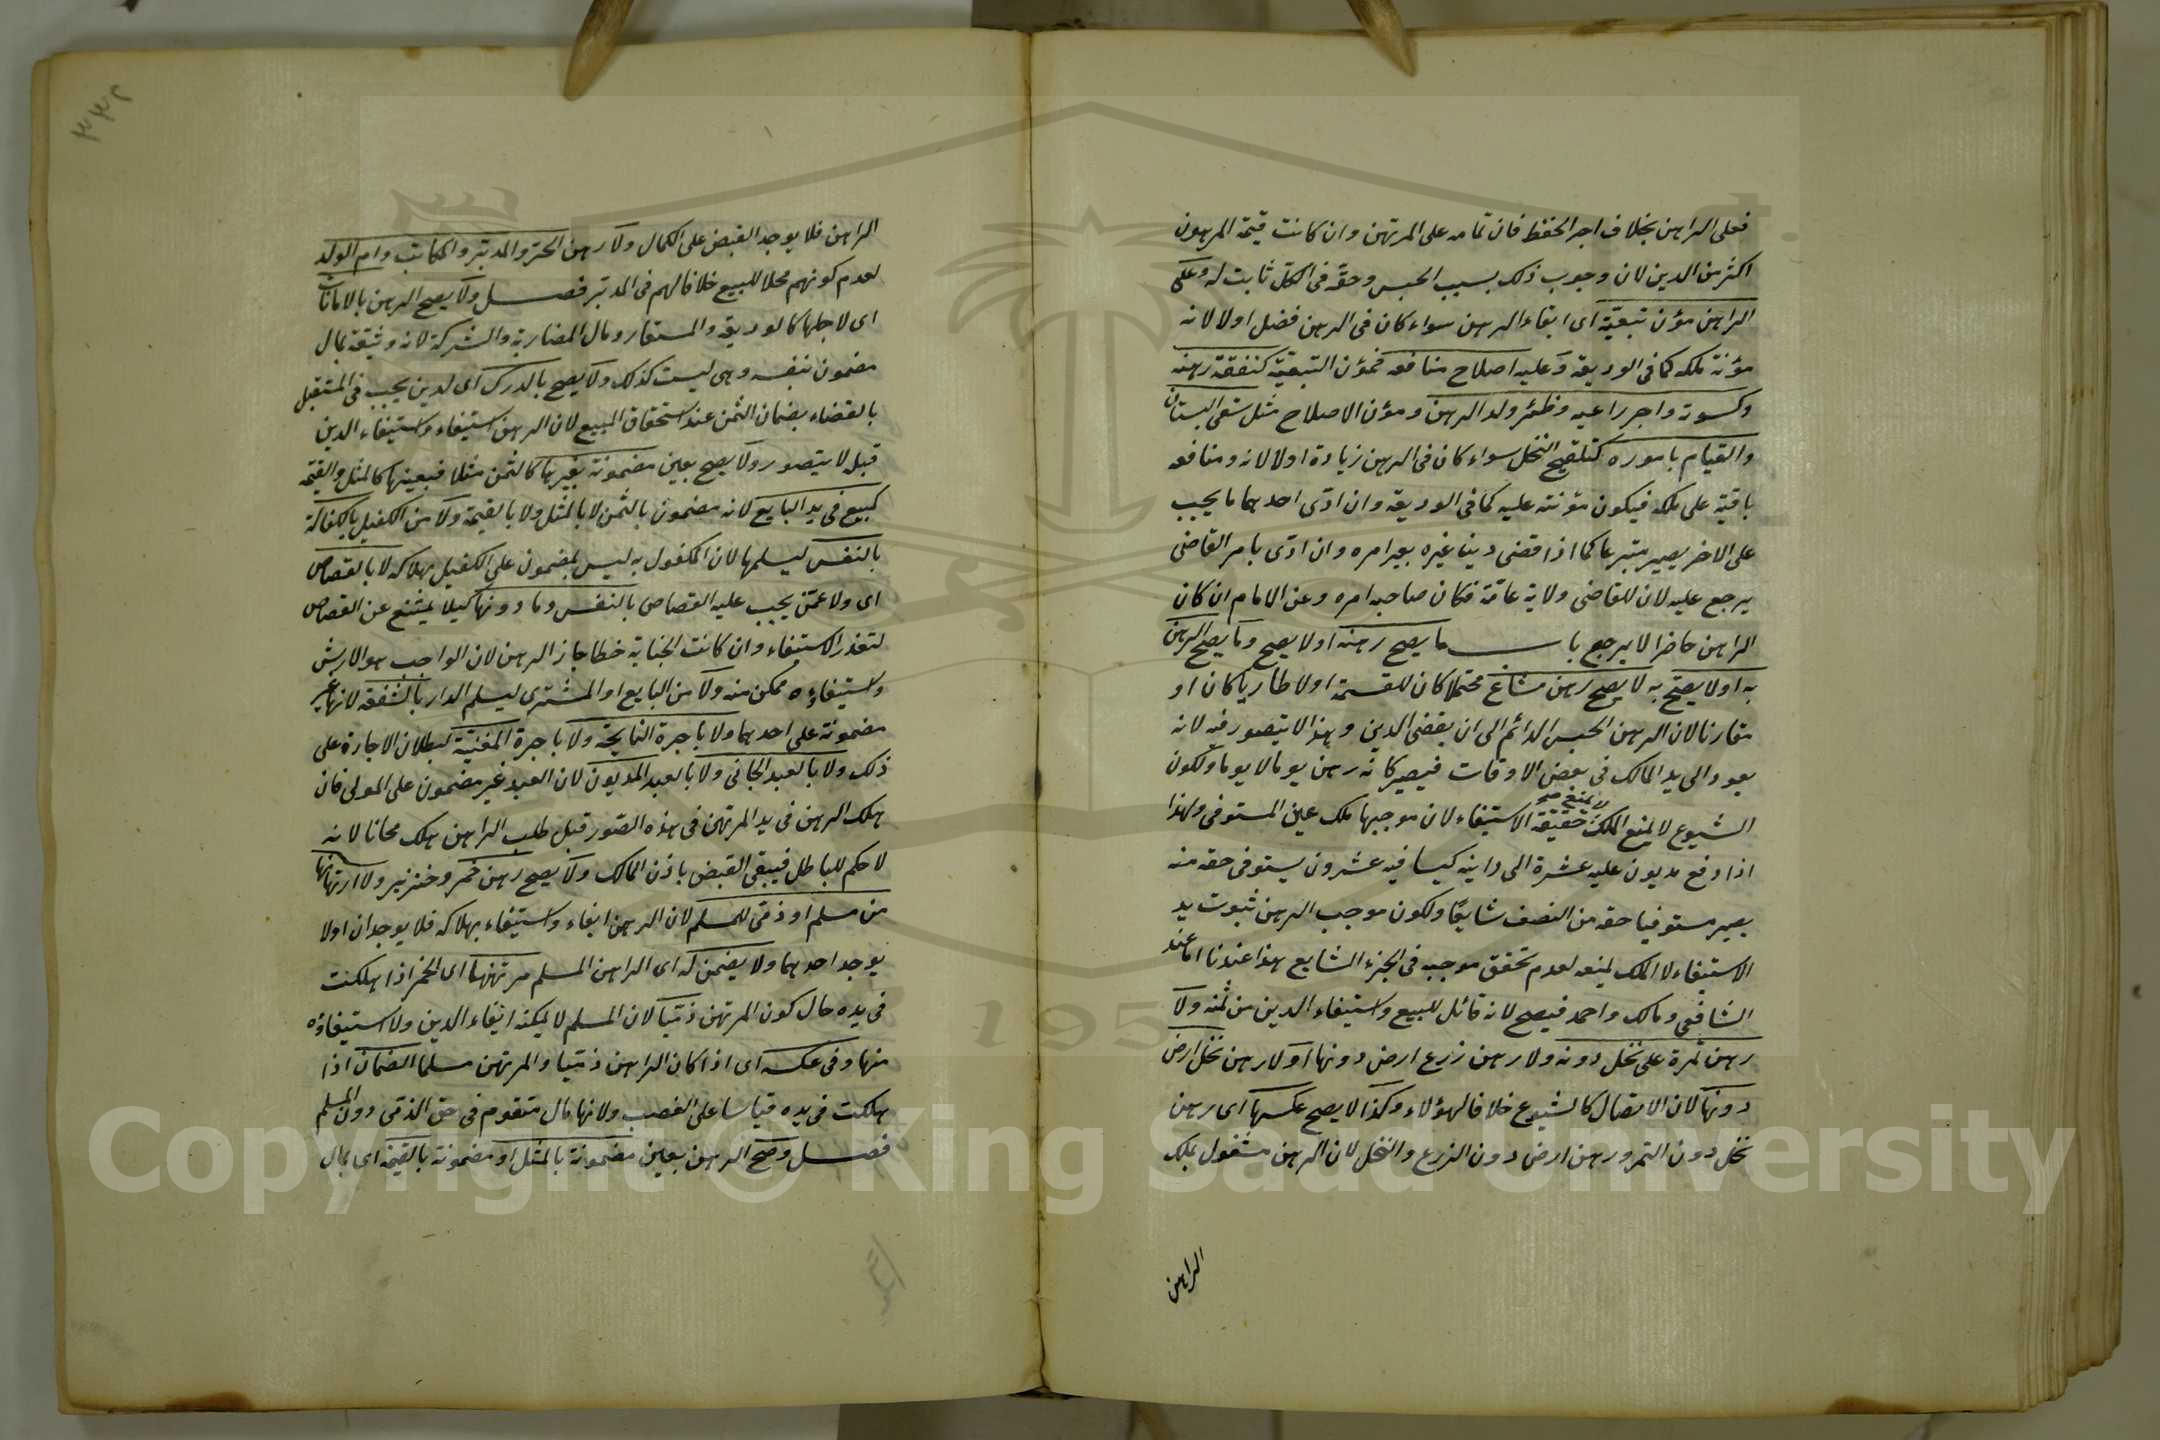 فعلى الراهن بخلاف اجر الحفظ فان تمامه على المرتهن وان كانت قيمة المرهون
اكثر من الدين لان وجوب ذلك بسبب الحبس وحقه فى الكل ثابت له وعلى
الراهن مؤن تبعيّة اى ابقاء الرهن سواء كان فى الرهن فضل اولا لانه
مؤنة ملكه كما فى الوديعة وعليه اصلاح منافعه فمؤن التبعيّة كنفقة رهنه
وكسوته واجر راعيه وظئر ولد الرهن ومؤن الاصلاح مثل سقى البستان
والقيام باموره كتلقيح النخل سواء كان فى الرهن زيادة اولا لانه ومنافعه
باقية على ملكه فيكون مؤنته عليه كما فى الوديعة وان ادّى احدهما ما يجب
على الاخر يصير متبرعا كما اذا قضى دين غيره بغير امره وان ادّى بامر القاضى
يرجع عليه لان للقاضى ولاية عامّة فكان صاحبه امره وعن الامام ان كان
الراهن حاضرا لا يرجع باب ما يصح رهنه اولا يصح وما يصح الرهن
به اولا يصح به لا يصح رهن مشاع محتملا كان للقسمة اولا طاريا كان او
مقارنا لان الرهن الحبس الدائم الى ان يقضى الدين وهذا لا يتصور فيه لانه
يعود الى يد المالك فى بعض الاوقات فيصير كانه رهن يوما لا يوما ولكون
الشيوع لا يمنع الملك لا يمنع صح حقيقة الاستيفاء لان موجبها ملك عين المستوفى ولهذا
اذا دفع مديون عليه عشرة الى داينه كيسا فيه عشرون يستوفى حقه منه
يصير مستوفيا حقه من النصف شايعًا ولكون موجب الرهن ثبوت يد
الاستيفاء لا الملك يمنعه لعدم تحقق موجبه فى الجزء الشايع هذا عندنا اما عند
الشافعى ومالك واحمد فيصح لانه قائل للبيع واستيفاء الدين من ثمنه ولا
رهن ثمرة على نخل دونه ولا رهن زرع ارض دونها اولا رهن نخل ارض
دونها لان الاتصال كالشيوع خلافا لهؤلاء وكذا لا يصح عكسها اى رهن
نخل دون التمر ورهن ارض دون الزرع والنخل لان الرهن مشغول بملك
الراهن
٣٣٢
الراهن فلا يوجد القبض على الكمال ولا رهن الحرّ والمدبّر والمكاتب وام الولد
لعدم كونهم محلا للبيع خلافا لهم فى المدبّر فصل ولا يصح الرهن بالامانات
اى لاجلها كالوديعة والمستعار ومال المضاربة والشركة لانه وثيقة بمال
مضمون بنفسه وهى ليست كذلك ولا يصح بالدرك اى لدين يجب فى المستقبل
بالقضاء بضمان الثمن عند استحقاق المبيع لان الرهن استيفاء واستيفاء الدين
قبله لا يتصور ولا يصح بعين مضمونة بغيرها كالثمن مثلا فبعينها كالمثل والقيمة
كمبيع فى يد البايع لانه مضمون بالثمن لا بالمثل ولا بالقيمة ولا من الكفيل بالكفالة
بالنفس ليسلمها لان المكفول به ليس بمضمون على الكفيل بهلاكه لا بالقصاص
اى ولا عمّن يجب عليه القصاص بالنفس وما دونها كيلا يمتنع عن القصاص
لتعذر الاستيفاء وان كانت الجناية خطا جاز الرهن لان الواجب هو الارش
واستيفاؤه ممكن منه ولا من البايع او المشترى ليسلم الدار بالشفعة لانها غير
مضمونة على احدهما ولا باجرة النايحة ولا باجرة المغنيّة لبطلان الاجارة على
ذلك ولا بالعبد الجانى ولا بالعبد المديون لان العبد غير مضمون على المولى فان
هلك الرهن فى يد المرتهن فى هذه الصّور قبل طلب الراهن هلك مجانا لانه
لا حكم للباطل فيبقى القبض باذن المالك ولا يصح رهن خمر وخنزير ولا ارتهانها
من مسلم او ذمّى للمسلم لان الرهن ايفاء واستيفاء بهلاكه فلا يوجدان اولا
يوجد احدهما ولا يضمن له اى الراهن المسلم مرتهنها اى الخمر اذا هلكت
فى يده حال كون المرتهن ذميّا لان المسلم لا يمكنه ايفاء الدين ولا استيفاؤه
منها وفى عكسه اى اذا كان الراهن ذميّا والمرتهن مسلما الضمان اذا
هلكت فى يده قياسا على الغصب ولانها مال متقوم فى حق الذمّى دون المسلم
فصل وصح الرهن بعين مضمونة بالمثل او مضمونة بالقيمة اى بمال
195
Copyright © King Saud University